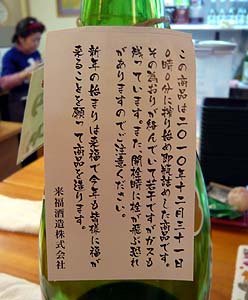 この商品は二〇一〇年十二月三十一日
0時0分に搾り始め即瓶詰めした商品です。
その為おりが絡んでいて若干ですがガスも
残っています。また開栓時に栓が飛ぶ恐れ
がありますのでご注意ください。
新年の始まりは来福で今年も皆様に福が
来ることを願って商品を造ります。
来福酒造株式会社